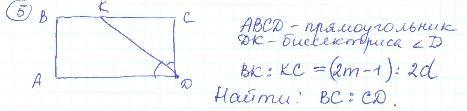 5
B K C
A D
ABCD - прямоугольник
DK - биссектриса ∠D
BK : KC = (2m-1) : 2d
Найти: BC : CD.